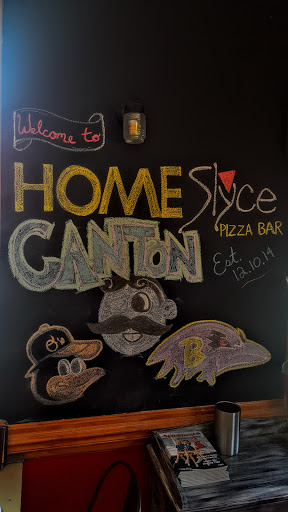 Welcome to
HOME Slyce
PIZZA BAR
CANTON
Est.
12.10.14
O's
B